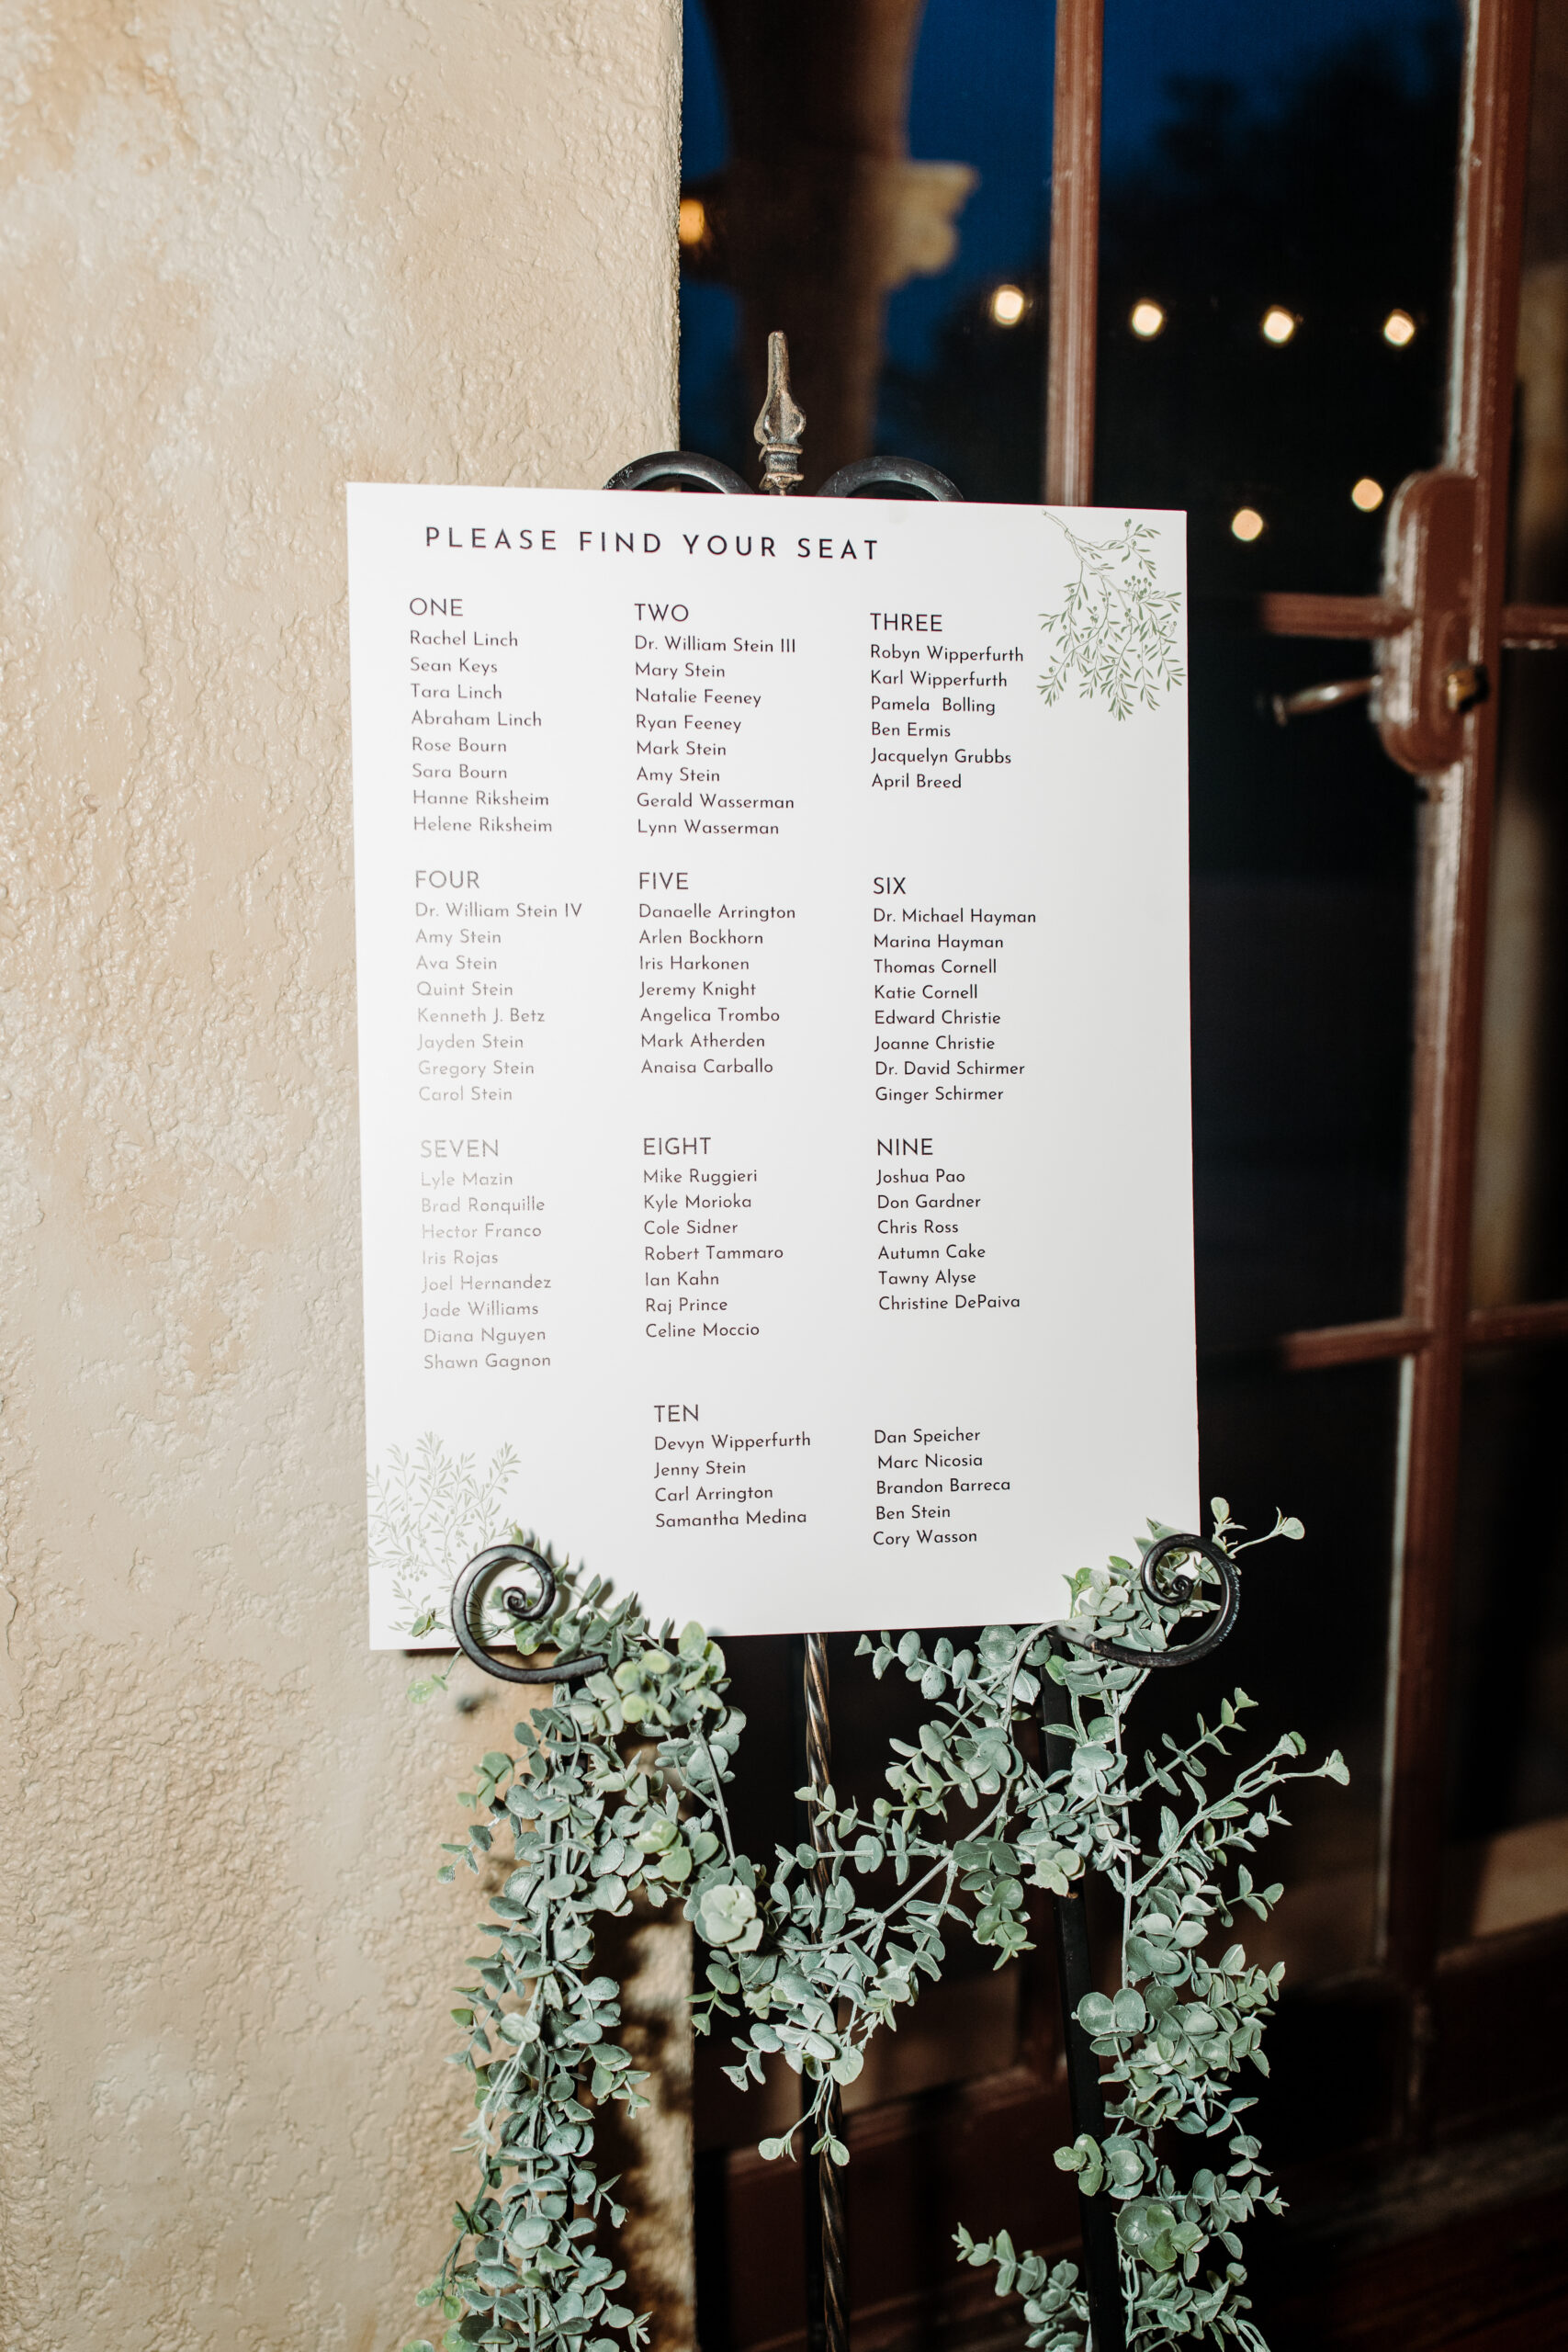 PLEASE FIND YOUR SEAT
ONE
Rachel Linch
Sean Keys
Tara Linch
Abraham Linch
Rose Bourn
Sara Bourn
Hanne Riksheim
Helene Riksheim
TWO
Dr. William Stein III
Mary Stein
Natalie Feeney
Ryan Feeney
Mark Stein
Amy Stein
Gerald Wasserman
Lynn Wasserman
THREE
Robyn Wipperfurth
Karl Wipperfurth
Pamela Bolling
Ben Ermis
Jacquelyn Grubbs
April Breed
FOUR
Dr. William Stein IV
Amy Stein
Ava Stein
Quint Stein
Kenneth J. Betz
Jayden Stein
Gregory Stein
Carol Stein
FIVE
Danaelle Arrington
Arlen Bockhorn
Iris Harkonen
Jeremy Knight
Angelica Trombo
Mark Atherden
Anaisa Carballo
SIX
Dr. Michael Hayman
Marina Hayman
Thomas Cornell
Katie Cornell
Edward Christie
Joanne Christie
Dr. David Schirmer
Ginger Schirmer
SEVEN
Lyle Mazin
Brad Ronquille
Hector Franco
Iris Rojas
Joel Hernandez
Jade Williams
Diana Nguyen
Shawn Gagnon
EIGHT
Mike Ruggieri
Kyle Morioka
Cole Sidner
Robert Tammaro
Ian Kahn
Raj Prince
Celine Moccio
NINE
Joshua Pao
Don Gardner
Chris Ross
Autumn Cake
Tawny Alyse
Christine DePaiva
TEN
Devyn Wipperfurth
Jenny Stein
Carl Arrington
Samantha Medina
Dan Speicher
Marc Nicosia
Brandon Barreca
Ben Stein
Cory Wasson